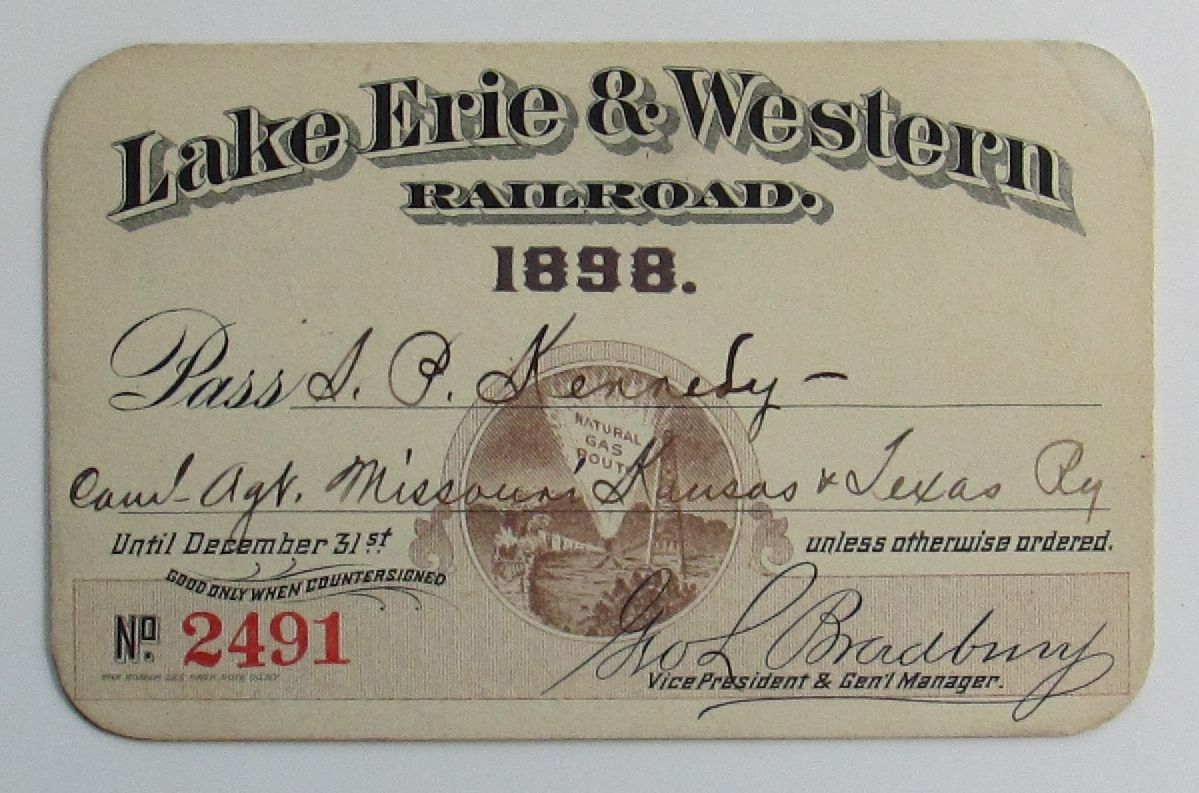 Lake Erie & Western
RAILROAD.
1898.
Pass S. P. Kennedy –
NATURAL
GAS
ROUTE
Com'l Agt. Missouri Kansas & Texas Ry
Until December 31st unless otherwise ordered.
GOOD ONLY WHEN COUNTERSIGNED
No. 2491
Geo L Bradbury
Vice President & Gen'l Manager.